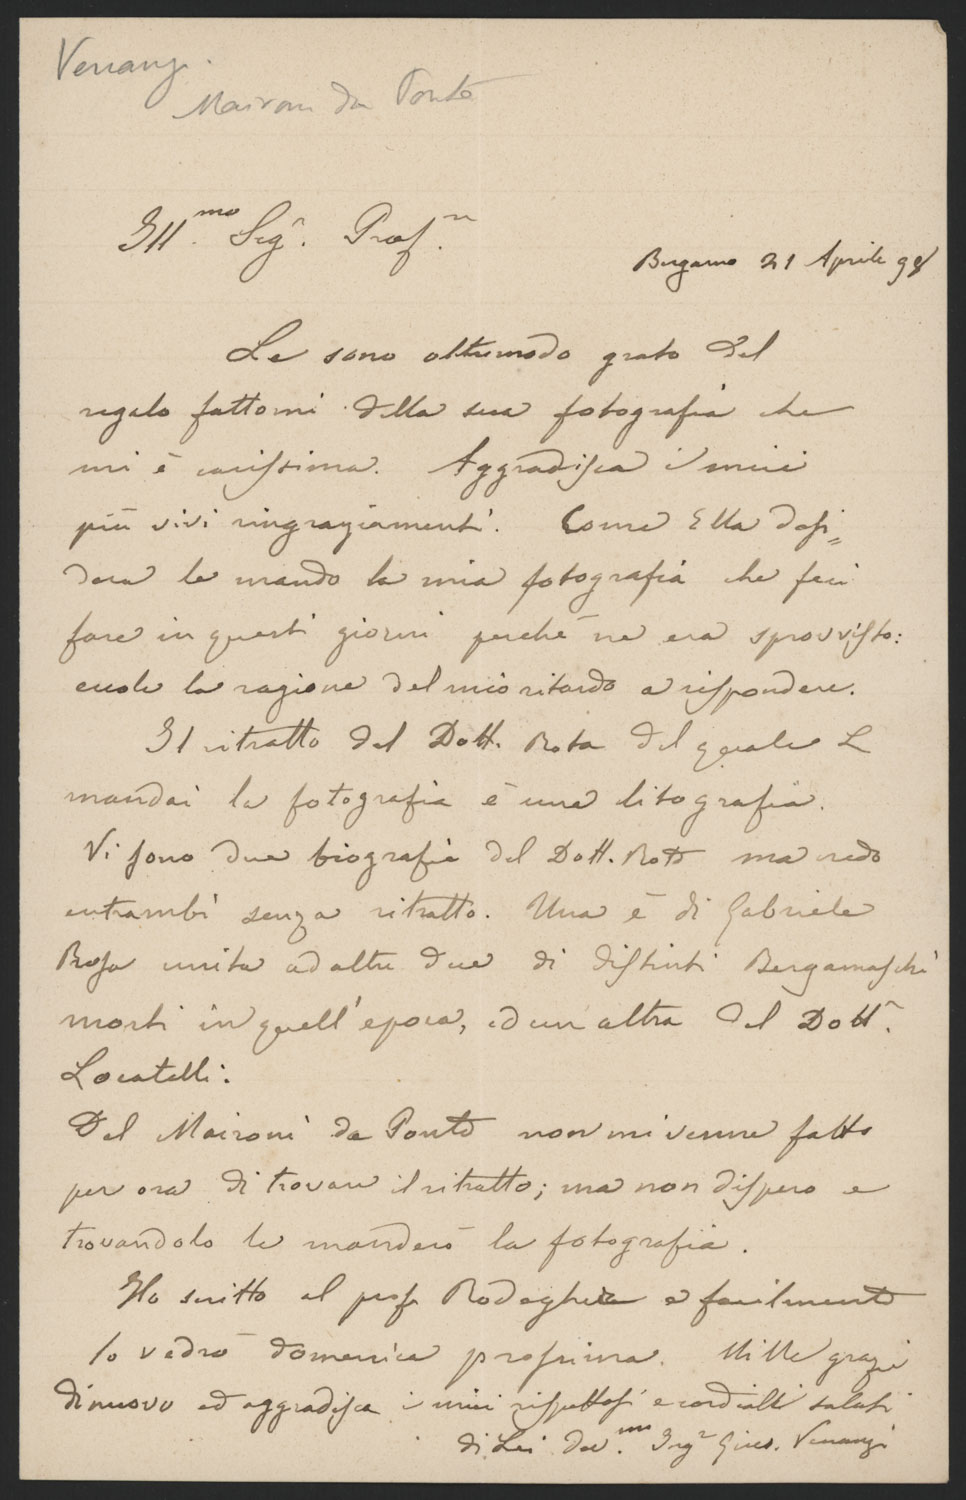 Venanzi.
Maironi da Ponte
Ill.mo Sigr. Prof.re
Bergamo 21 Aprile 98
Le sono oltremodo grato del
regalo fattomi della sua fotografia che
mi è carissima. Aggradisca i miei
più vivi ringraziamenti. Come Ella desi=
dera le mando la mia fotografia che feci
fare in questi giorni perchè ne era sprovvisto:
eccole la ragione del mio ritardo a rispondere.
Il ritratto del Dott. Rota del quale Le
mandai la fotografia è una litografia.
Vi sono due biografie del Dott. Rota ma credo
entrambi senza ritratto. Una è di Gabriele
Rosa unita ad altre due di distinti Bergamaschi
morti in quell'epoca, ed un altra del Dottr.
Locatelli.
Del Maironi da Ponte non mi venne fatto
per ora di trovare il ritratto; ma non dispero e
trovandolo le manderò la fotografia.
Ho scritto al prof. Rodeghiero e facilmente
lo vedrò domenica prossima. Mille grazie
di nuovo ed aggradisca i miei rispettosi e cordiali saluti
di Lei dev.mo Ingr Gius. Venanzi